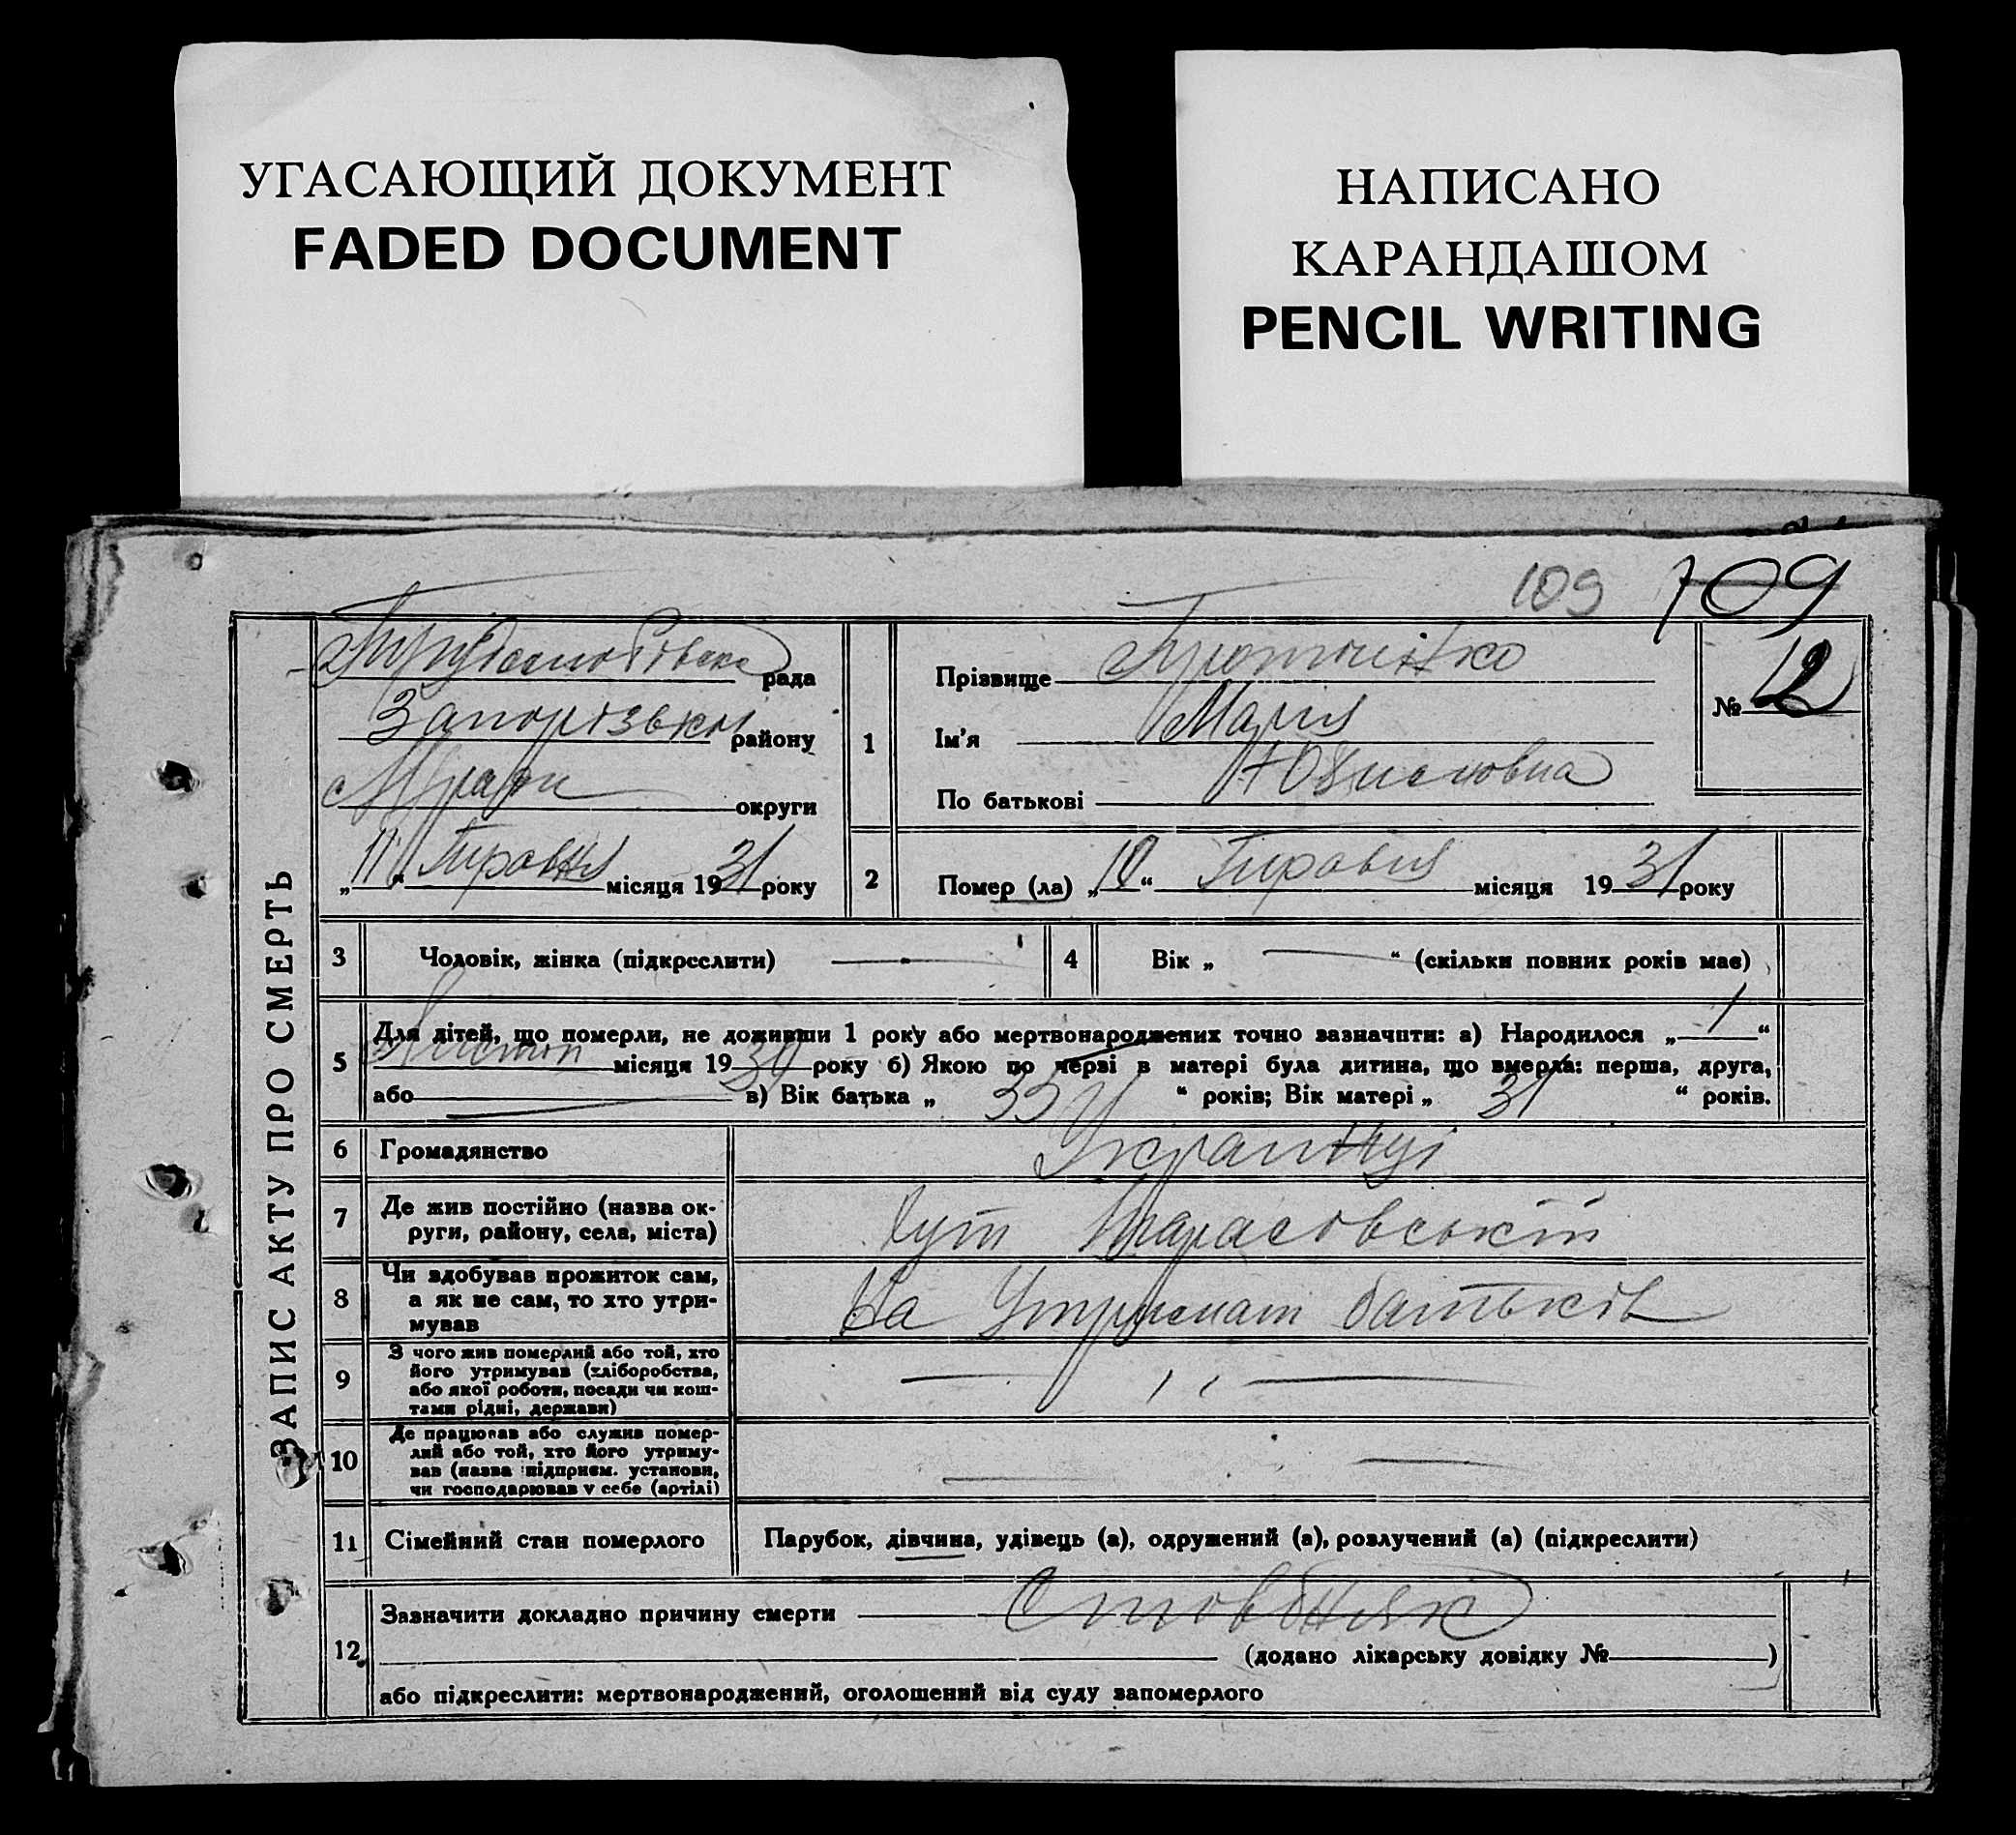 УГАСАЮЩИЙ ДОКУМЕНТ
FADED DOCUMENT
НАПИСАНО
КАРАНДАШОМ
PENCIL WRITING
109 109
ЗАПИС АКТУ ПРО СМЕРТЬ
рада
Запорізької району
М/ради округи
„11“ Гровня місяця 1931 року
1
Прізвище
Ім'я Марія
По батькові
№ 12
2
Помер (ла) „10“ Гировня місяця 1931 року
3 Чоловік, жінка (підкреслити)
4 Вік „ “ (скільки повних років має)
5 Для дітей, що померли, не доживши 1 року або мертвонароджених точно зазначити: а) Народилося „1“
Листоп місяця 1930 року б) Якою по черві в матері була дитина, що вмерла: перша, друга,
або в) Вік батька „ 33 “ років; Вік матері „ 31 “ років.
6 Громадянство Украінці
7 Де жив постійно (назва ок-
руги, району, села, міста) Хут Тарасовський
8 Чи здобував прожиток сам,
а як не сам, то хто утри-
мував На Утримат батьків
9 З чого жив померлий або той, хто
його утримував (хліборобства,
або якої роботи, посади чи кош-
тами рідні, держави) — ,, —
10 Де працював або служив помер-
лий або той, хто його утриму-
вав (назва підприєм. установи,
чи господарював у себе (артілі)
11 Сімейний стан померлого Парубок, дівчина, удівець (а), одружений (а), розлучений (а) (підкреслити)
12 Зазначити докладно причину смерти Стовбняк
(додано лікарську довідку № )
або підкреслити: мертвонароджений, оголошений від суду запомерлого